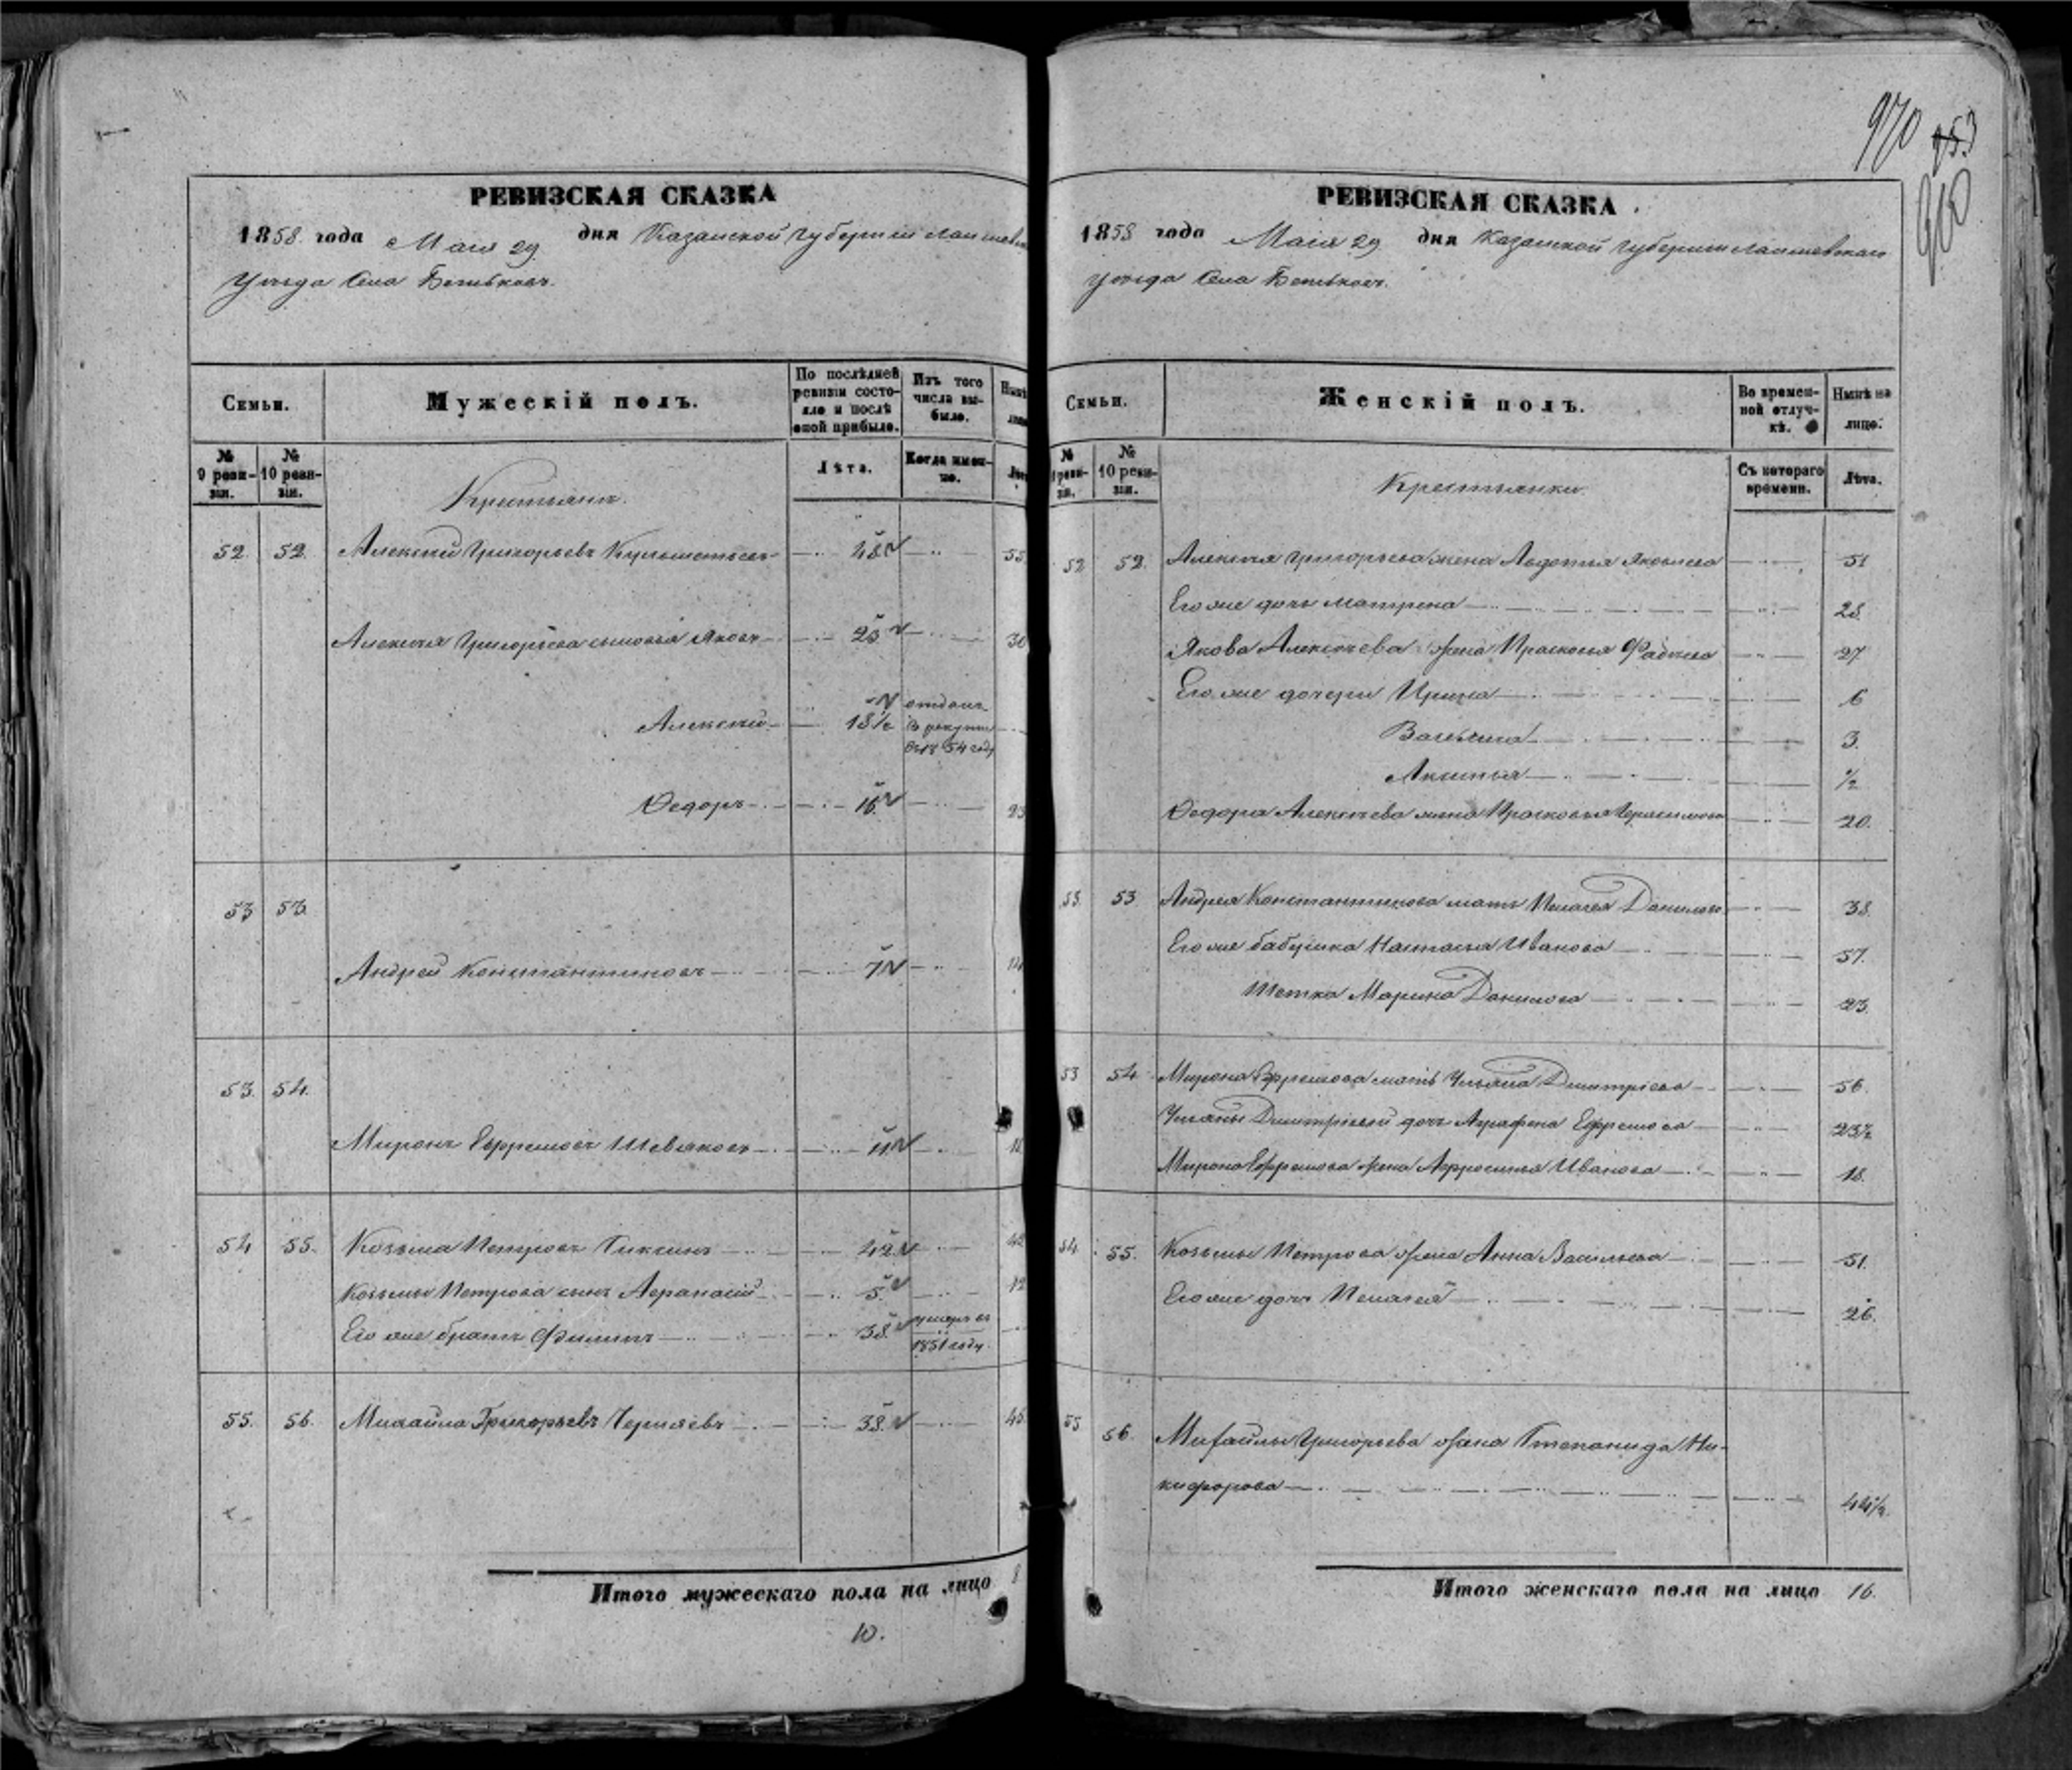 970 253
960
РЕВИЗСКАЯ СКАЗКА
1858 года Маія 29 дня Казанской Губерніи Лаишевск
Уѣзда Села
Семьи.
Мужескій полъ.
По послѣдней ревизіи состояло и послѣ оной прибыло.
Изъ того числа выбыло.
№ 9 ревизіи.
№ 10 ревизіи.
Лѣта.
Когда именно.
Крестьянъ.
52. 52. Алексѣй Григорьевъ 48 55
Алексѣя Григорьева сыновья Яковъ 23 30
Алексѣй 18½ отданъ въ рекруты въ 1854 году
Федоръ 16 23
53 53.
Андрей Константиновъ 7 14
53. 54.
Миронъ Ефремовъ Шевяковъ 11 18
54 55. Козьма Петровъ 42
Козьмы Петрова сынъ Афанасій 5 12
Его же братъ Филипъ 38 умеръ въ 1851 году
55. 56. Михайла Григорьевъ Черняевъ 38 45
Итого мужескаго пола на лицо 8
10.
РЕВИЗСКАЯ СКАЗКА
1858 года Маія 29 дня Казанской Губерніи Лаишевскаго
Уѣзда Села
Семьи.
Женскій полъ.
Во временной отлучкѣ.
Нынѣ на лицо.
№ ревизіи.
№ 10 ревизіи.
Съ котораго времени.
Лѣта.
Крестьянки
52 52. Алексѣя Григорьева жена Авдотья Яковлева 51
Его же дочь Матрена 28
Якова Алексѣева жена Прасковья Фадѣева 27
Его же дочери Ирина 6
3.
Аксинья ½
Федора Алексѣева жена Прасковья Герасимова 20.
53. 53 Андрея Константинова мать Пелагея Данилова 38.
Его же бабушка Настасья Иванова 57.
Тетка Марина Данилова 23.
53 54 Мирона Ефремова мать Ульяна Дмитріева 56.
Ульяны Дмитріевой дочь Аграфена Ефремова 23½
Мирона Ефремова жена Афросинья Иванова 18.
54. 55. Козьмы Петрова жена Анна Васильева 51.
Его же дочь Пелагея 26.
55 56. Михайлы Григорьева жена Степанида Ни-
кифорова 44½
Итого женскаго пола на лицо 16.